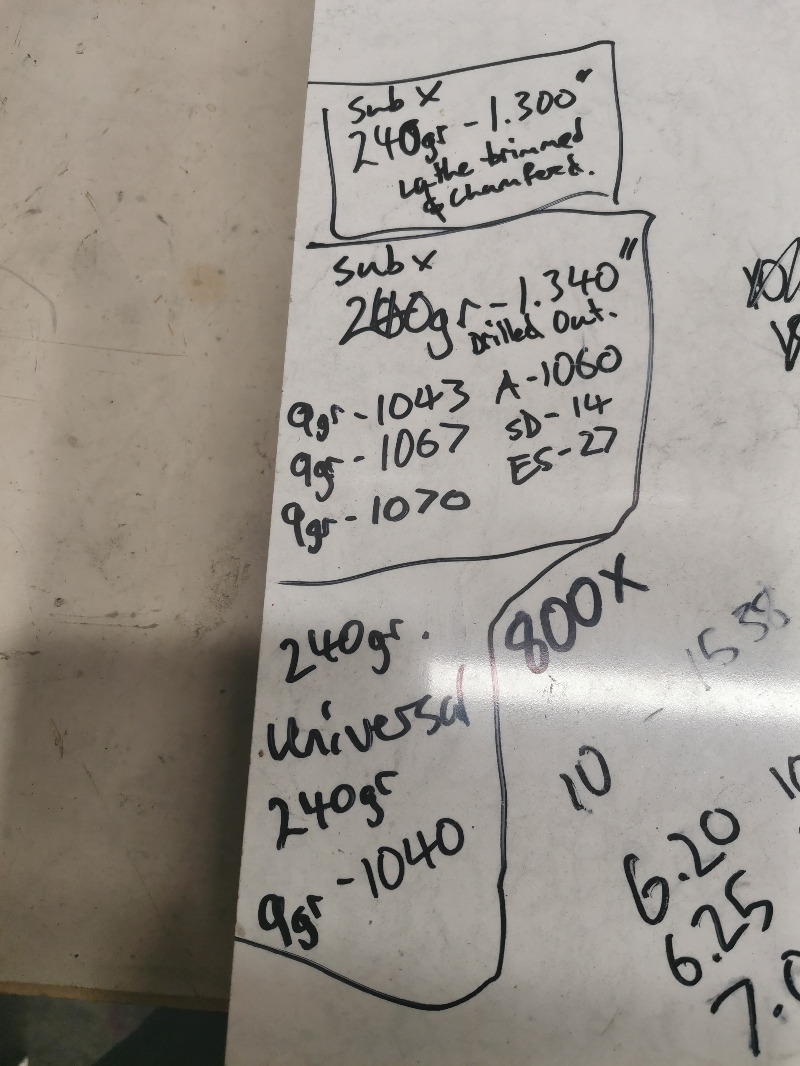 Sub X
240gr - 1.300"
the trimmed
& chamfered.
Sub X
gr - 1.340"
Drilled Out.
9gr - 1043 A - 1060
9gr - 1067 SD - 14
9gr - 1070 ES - 27
240gr.
800X
1538
Universal
240gr
10
9gr - 1040
6.20
6.25